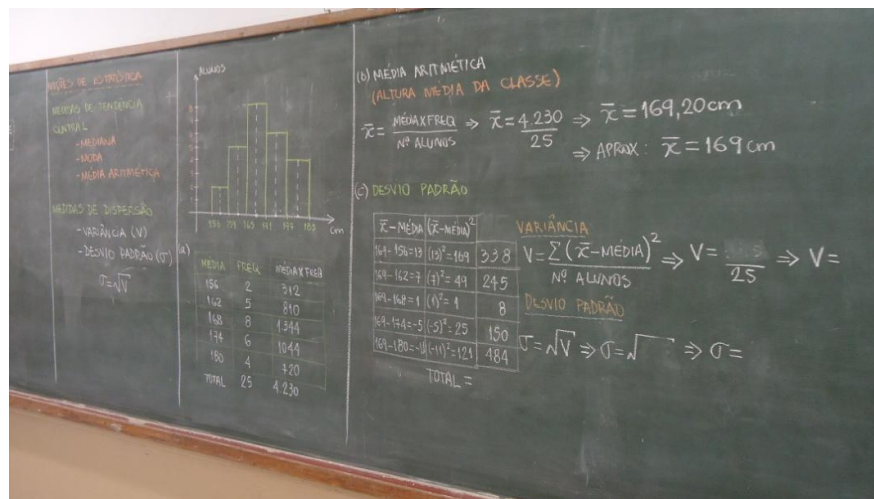 NOÇÕES DE ESTATÍSTICA
MEDIDAS DE TENDÊNCIA
CENTRAL
-MEDIANA
-MODA
-MÉDIA ARITMÉTICA
MEDIDAS DE DISPERSÃO
-VARIÂNCIA (V)
-DESVIO PADRÃO (σ)
σ=√V
ALUNOS
cm
(a)
MÉDIA FREQ MÉDIA X FREQ
156 2 312
162 5 810
168 8 1344
174 6 1044
180 4 720
TOTAL 25 4.230
(b) MÉDIA ARITMÉTICA
(ALTURA MÉDIA DA CLASSE)
x̄ = MÉDIA X FREQ / Nº ALUNOS ⇒ x̄ = 4.230 / 25 ⇒ x̄ = 169,20 cm
⇒ APROX: x̄ = 169 cm
(c) DESVIO PADRÃO
x̄ - MÉDIA (x̄ - MÉDIA)²
169-156=13 (13)²=169 338
169-162=7 (7)²=49 245
169-168=1 (1)²=1 8
169-174=-5 (-5)²=25 150
169-180=-11 (-11)²=121 484
TOTAL =
VARIÂNCIA
V = Σ(x̄ - MÉDIA)² / Nº ALUNOS ⇒ V = / 25 ⇒ V =
DESVIO PADRÃO
σ=√V ⇒ σ=√ ⇒ σ=